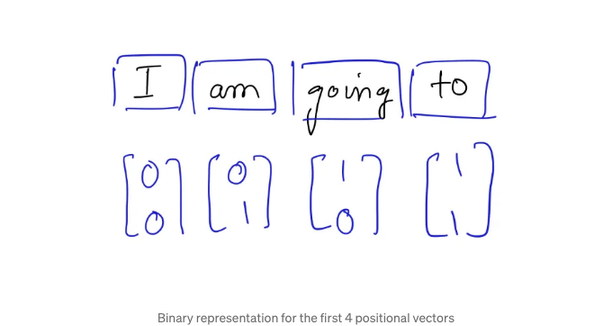 I am going to
0 0 1 1
0 1 0 1
Binary representation for the first 4 positional vectors